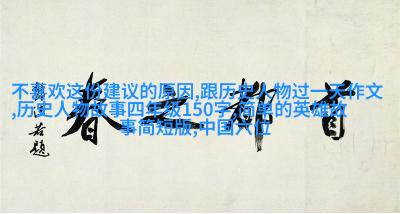 不喜欢这份建议的原因,跟历史人物过一天作文
,历史人物故事四年级150字,简单的英雄故
事简短版,中国六位
首都之春
郭沫若题